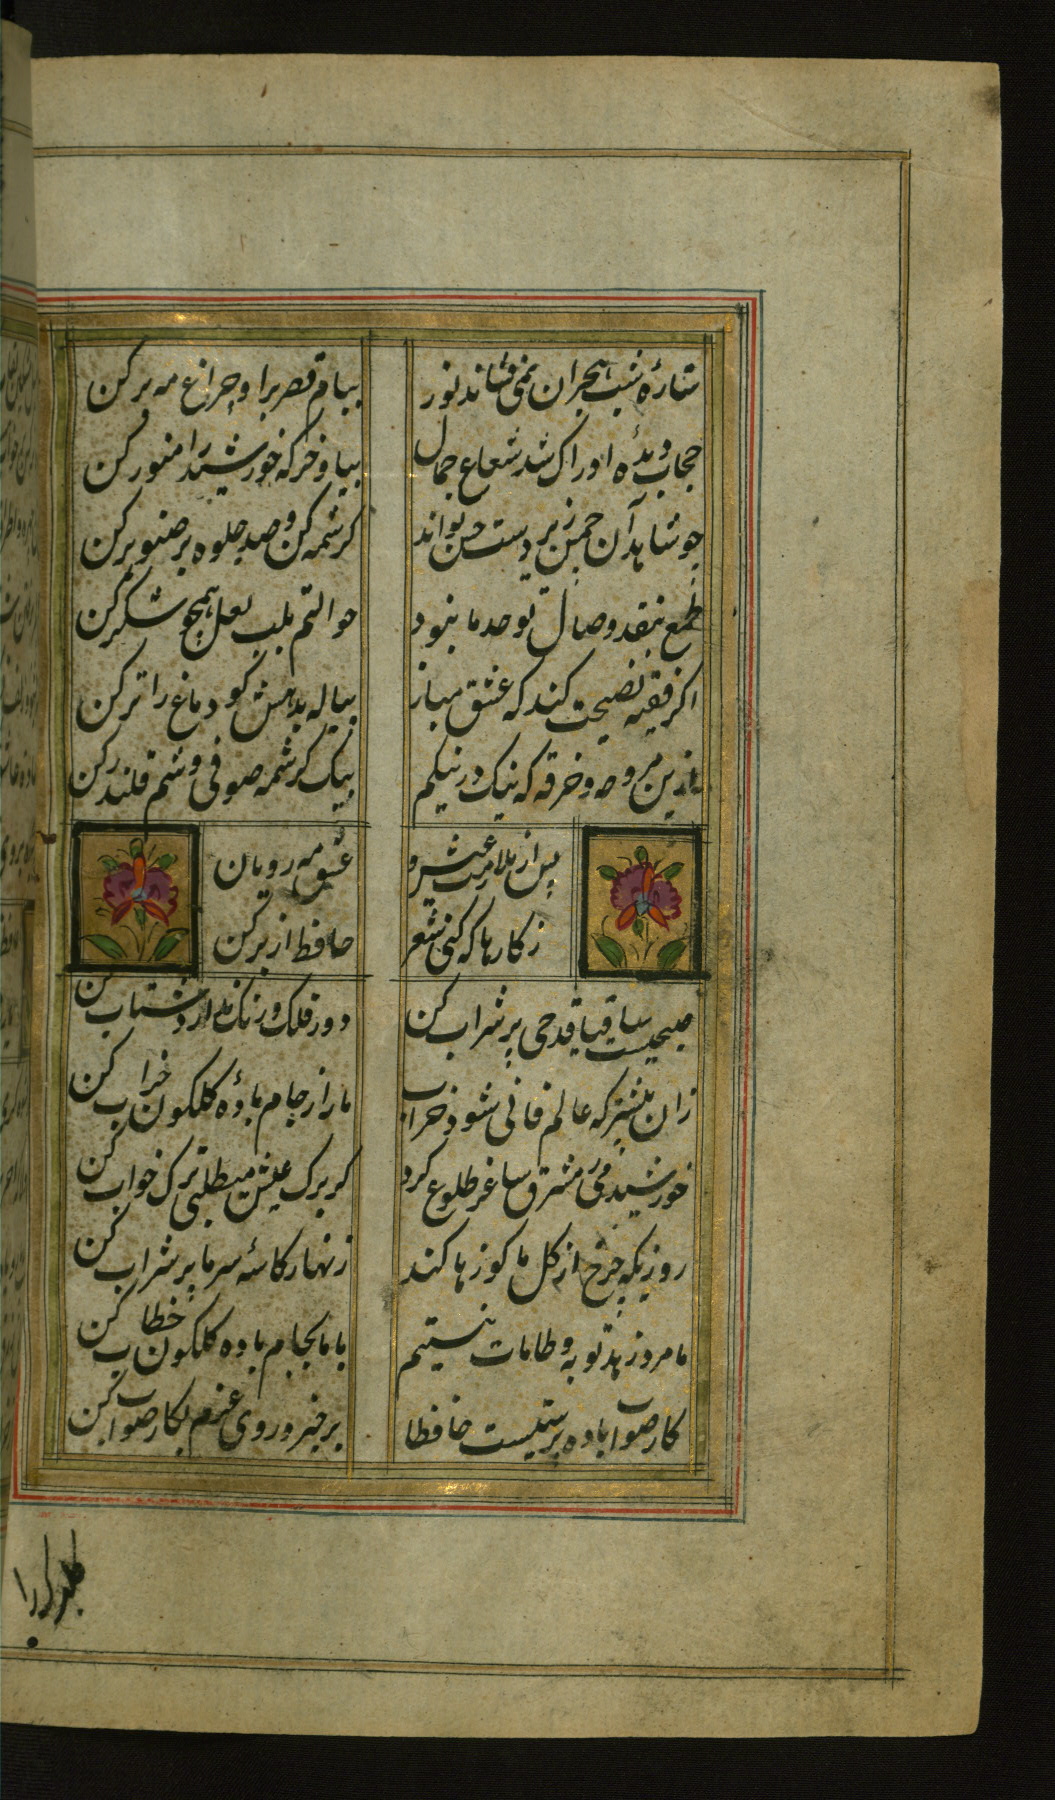 ستارهٔ شب هجران نمی فشاند نور
ببام قصر برا و چراغ مه بر کن
حجاب دیدهٔ ادراک شد شعاع جمال
بیا و خرکه خورشید را منور کن
چو شاهدان چمن زیر دست حسن تواند
کرشمه کن و صد جلوه بر صنوبر کن
طمع بنقد وصال تو حد ما نبود
حوالتم بلب لعل همچو شکر کن
اکر فقیه نصیحت کند که عشق مباز
پیاله بدهش کو دماغ را تر کن
ازین مروحه و خرقه که نیک در نیکم
بیک کرشمه صوفی وشم قلندر کن
پس از ملازمت عیش و
عشق مه رویان
ز کارها که کنی شعر
حافظ از بر کن
صبحیست ساقیا قدحی پر شراب کن
دور فلک درنک ندارد شتاب کن
زان پیشتر که عالم فانی شود خراب
ما را ز جام بادهٔ کلکون خراب کن
خورشید می ز مشرق ساغر طلوع کرد
کر برک عیش میطلبی ترک خواب کن
روزیکه چرخ از کل ما کوزها کند
زنهار کاسهٔ سر ما پر شراب کن
ما مرد زهد توبه و طامات نیستیم
با ما بجام باده کلکون خطاب کن
کار صواب باده پرستیست حافظا
برخیز و روی عزم بکار صواب کن
کلبرک را